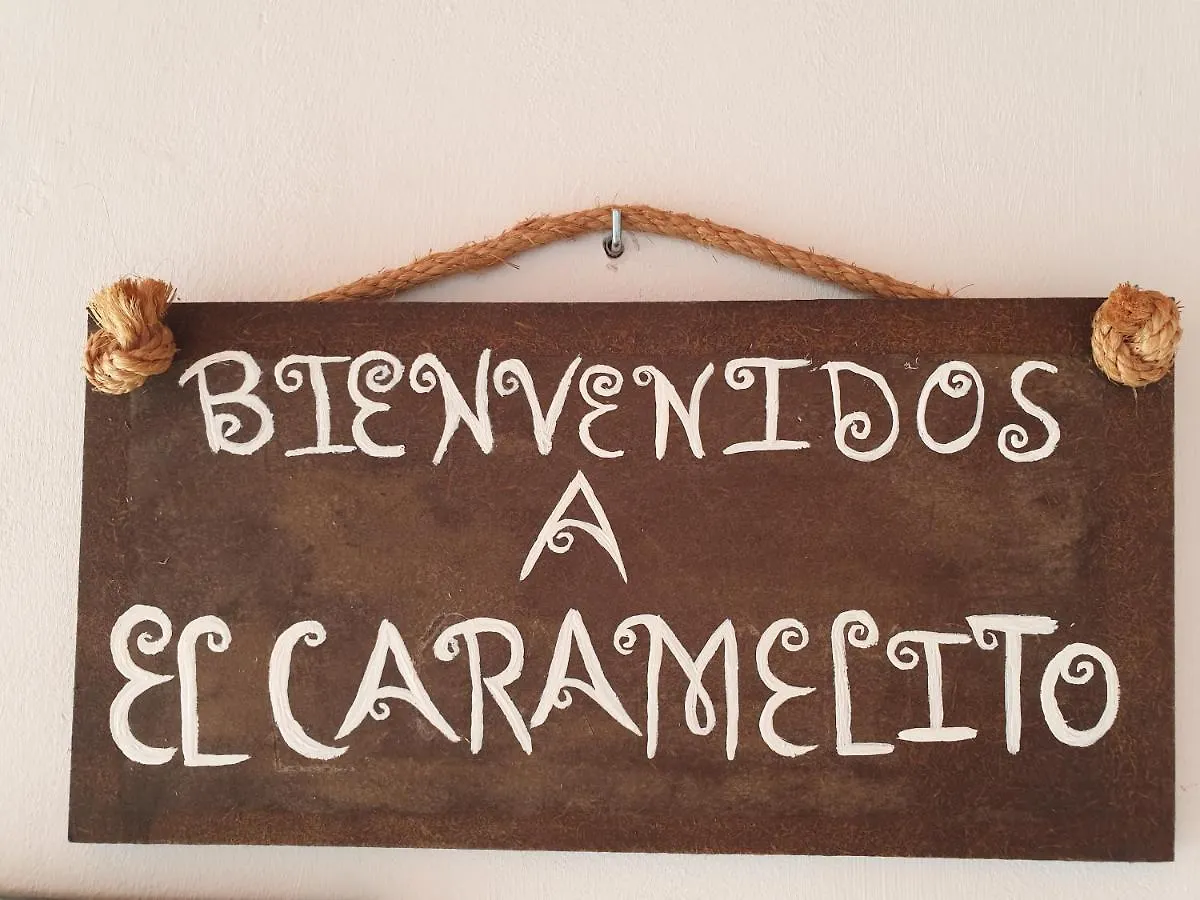 BIENVENIDOS
A
EL CARAMELITO